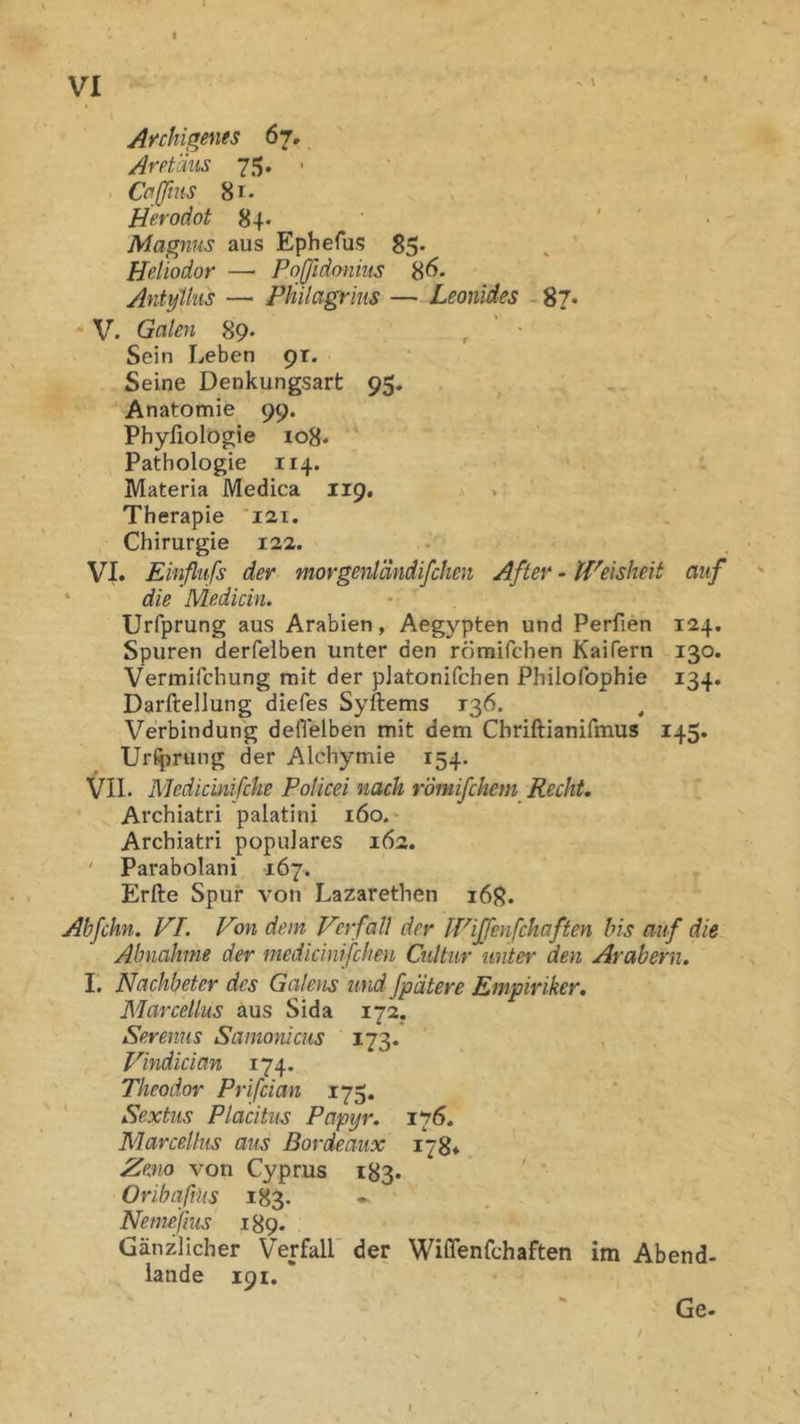 VI
Archigenes 67.
Aretäus 75.
Caſſius 81.
Herodot 84.
Magnus aus Epheſus 85.
Heliodor — Poſſidonius 86.
Antyllus — Philagrius — Leonides 87.
V. Galen 89.
Sein Leben 91.
Seine Denkungsart 95.
Anatomie 99.
Phyſiologie 108.
Pathologie 114.
Materia Medica 119.
Therapie 121.
Chirurgie 122.
VI. Einfluſs der morgenländiſchen After-Weisheit auf
die Medicin.
Urſprung aus Arabien, Aegypten und Perſien 124.
Spuren derſelben unter den römiſchen Kaiſern 130.
Vermiſchung mit der platoniſchen Philoſophie 134.
Darſtellung dieſes Syſtems 136.
Verbindung deſſelben mit dem Chriſtianiſmus 145.
Urſprung der Alchymie 154.
VII. Mediciniſche Policei nach römiſchem Recht.
Archiatri palatini 160.
Archiatri populares 162.
Parabolani 167.
Erſte Spur von Lazarethen 168.
Abſchn. VI. Von dem Verfall der Wiſſenſchaften bis auf die
Abnahme der mediciniſchen Cultur unter den Arabern.
I. Nachbeter des Galens und ſpätere Empiriker.
Marcellus aus Sida 172.
Serenus Samonicus 173.
Vindician 174.
Theodor Priſcian 175.
Sextus Placitus Papyr. 176.
Marcellus aus Bordeaux 178.
Zeno von Cyprus 183.
Oribaſius 183.
Nemeſius 189.
Gänzlicher Verfall der Wiſſenſchaften im Abend-
lande 191.
Ge-